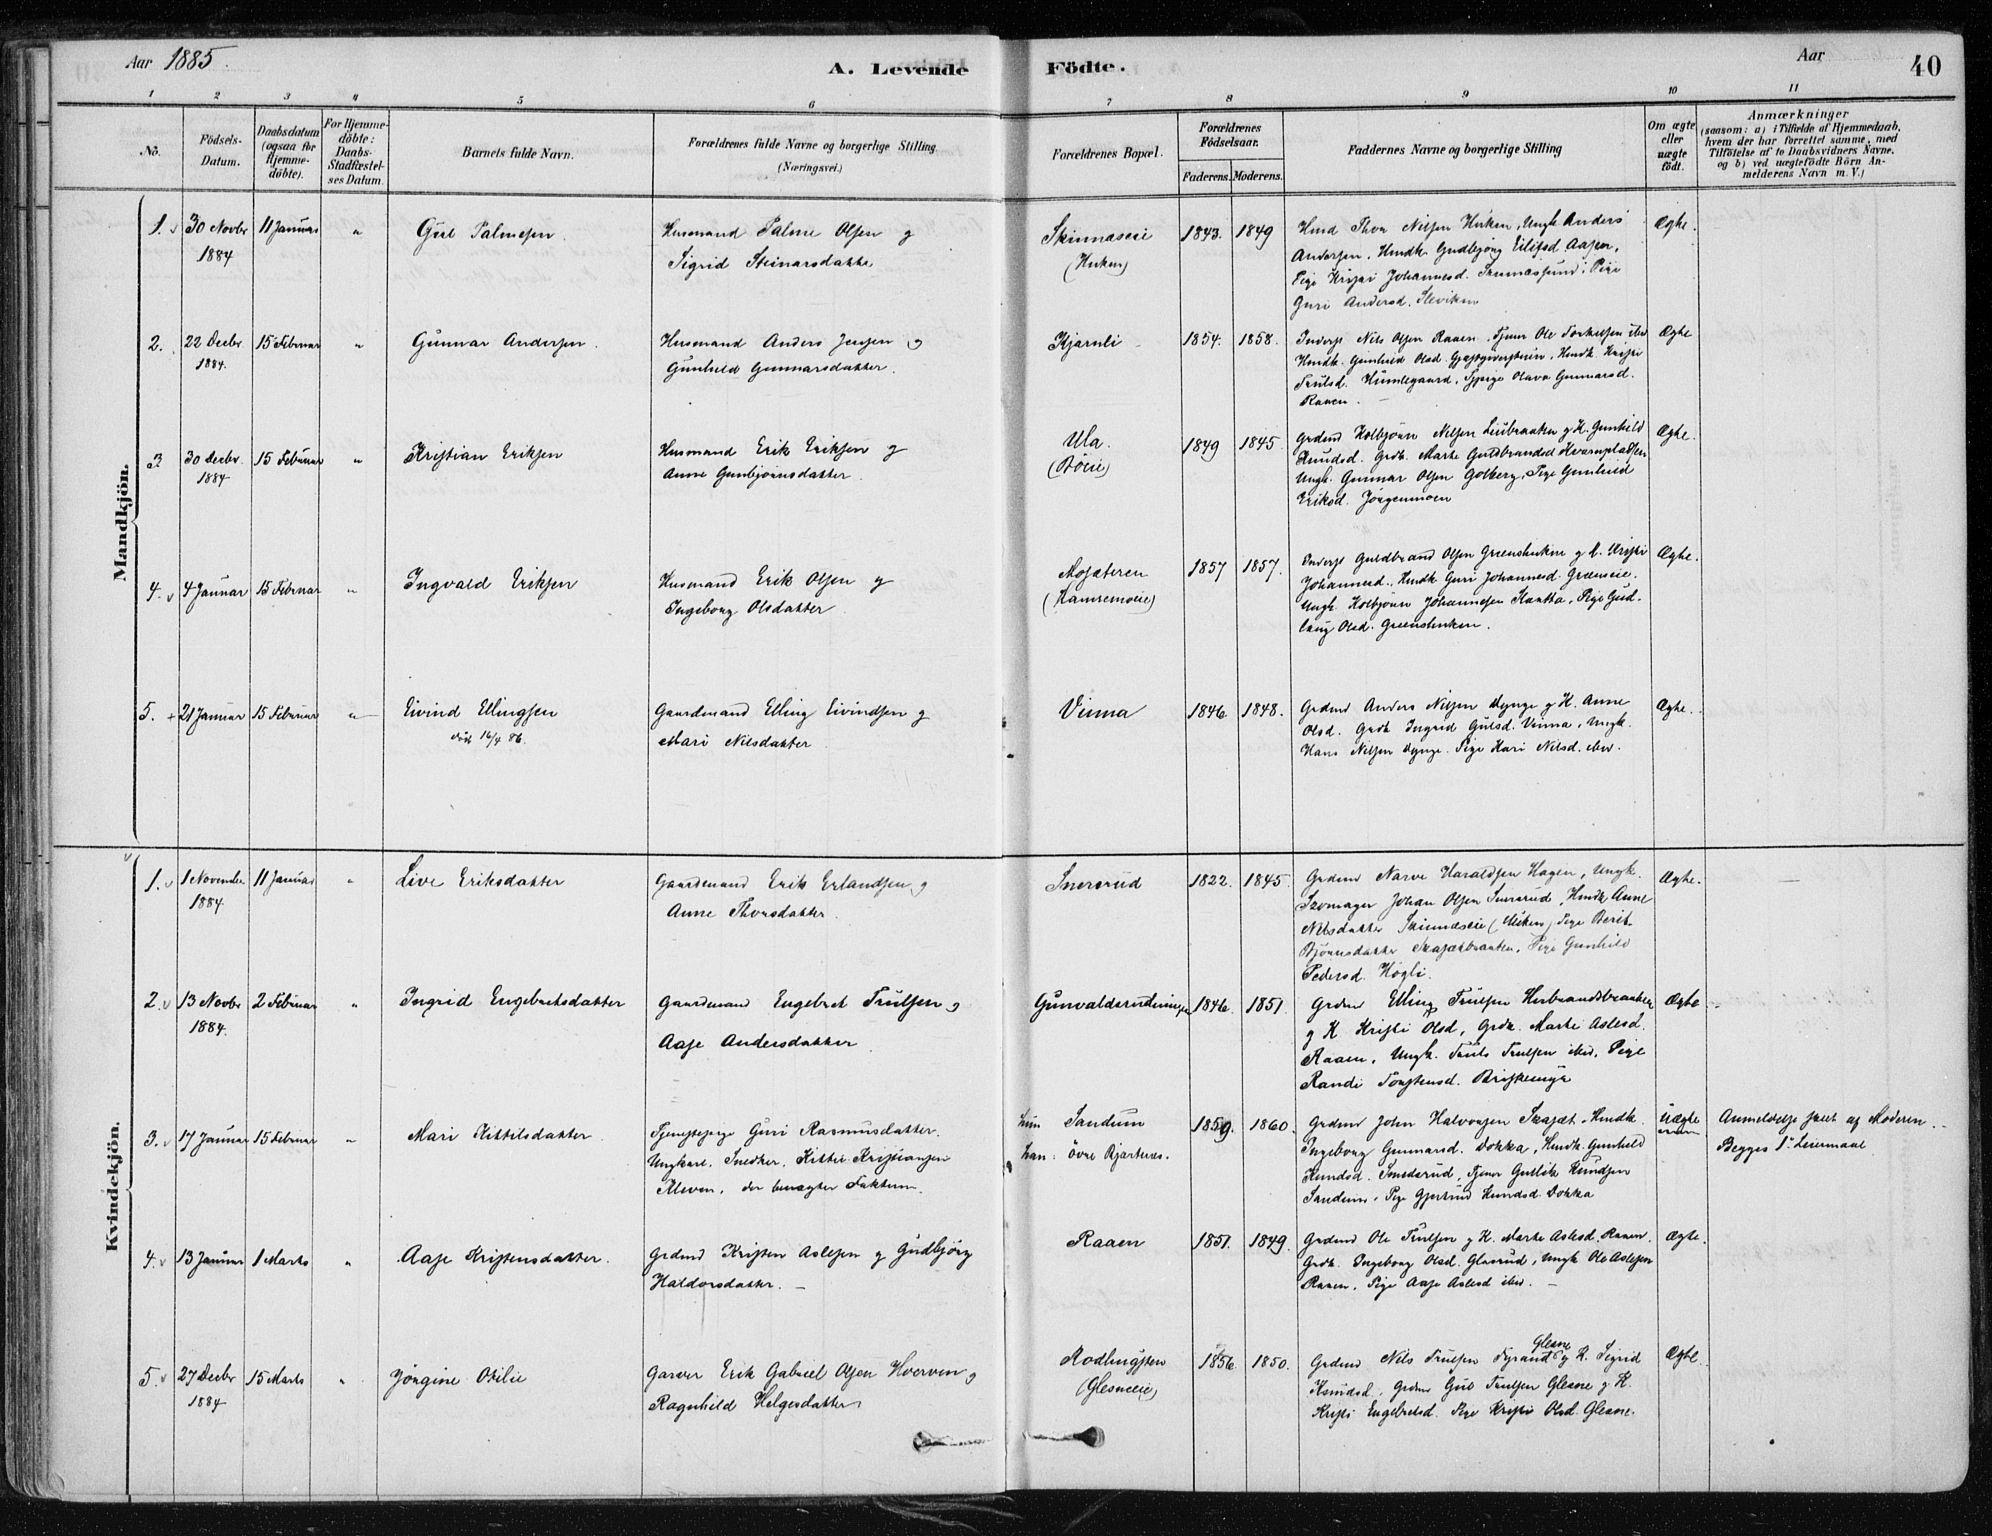 Aar 1885.
A. Levende Födte.
Aar
40
1 2 3 4 5 6 7 8 9 10 11
No.
Födsels-Datum.
Daabsdatum (ogsaa for Hjemme-döbte).
For Hjemme-döbte: Daabs-Stadfæstel-ses Datum.
Barnets fulde Navn.
Forældrenes fulde Navne og borgerlige Stilling (Næringsvei.)
Forældrenes Bopæl.
Forældrenes Födselsaar.
Faderens. Moderens.
Faddernes Navne og borgerlige Stilling
Om ægte eller uægte födt.
Anmærkninger
(saasom: a) i Tilfælde af Hjemmedaab,
hvem der har forrettet samme, med
Tilföielse af to Daabsvidners Navne,
og b) ved uægtefödte Börn An-
melderens Navn m. V.)
Mandkjön.
1. 30 Novbr 1884 11 Januar " Gul Palmesen.
Husmand Palme Olsen og
Sigrid Steinarsdatter
Skinnaseie (Huken) 1843. 1849
Hmd Thor Nilsen Huken, Ungk Anders
Andersen, Hmdk Gudbjörg Eilifsd Aasen,
Pige Kristi Johannesd.
Pige
Guri Andersd. Sleviken
Ægte.
2. 22 Decbr 1884. 15 Februar " Gunnar Andersen.
Husmand Anders Jensen og
Gunhild Gunnarsdatter.
Kjærnli 1854. 1858.
Inderst Nils Olsen Raaen, Tjener Ole Torkelsen ibid
Hmdk. Gunhild Olsd.
Hmdk. Kristi
Trulsd. Humlegaard, Tjpige Olava Gunnarsd.
Raaen.
Ægte
3. 30 Decbr. 1884 15 Februar " Kristian Eriksen
Husmand Erik Eriksen og
Anne Gunbjörnsdatter.
Ula. (Böeie) 1849 1845
Grdmd Kolbjörn Nilsen Liebraaten og K. Gunhild
Knudsd. Grdk. Marte Guldbrandsd Kværnpladsen
Ungk. Gunnar Olsen Golberg, Pige Gunhild
Eriksd. Jörgenmoen
Ægte.
4. 4 Januar 15 Februar " Ingvald Eriksen
Husmand Erik Olsen og
Ingeborg Olsdatter
Mosæteren (Hamremoeie) 1857 1857.
Inderst Guldbrand Olsen Greenshuken og K. Kristi
Johannesd., Hmdk Guri Johannesd. Græneie.
Ungk. Kolbjörn Johannesen Skatta, Pige Gud-
laug Olsd. Greenshuken.
Ægte.
5. 21 Januar 15 Februar " Eivind Ellingsen
död 16/4 86.
Gaardmand Elling Eivindsen og
Mari Nilsdatter
Vinna 1846 1848.
Grdmd Anders Nilsen Dynge og K. Anne
Olsd. Grdk Ingrid Gulsd. Vinna, Ungk.
Hans Nilsen Dynge. Pige Kari Nilsd. ibid.
Ægte.
Kvindekjön.
1. 1 November 1884 11 Januar " Live Eriksdatter
Gaardmand Erik Erlandsen og
Anne Thorsdatter.
Snersrud 1822. 1845.
Grdmd Narve Haraldsen Hagen, Ungk.
Skomager Johan Olsen Snersrud, Hmdk Anne
Nilsdatter Skinnaseie (Huken) Pige Berit
Björnsdatter Skafætbraaten, Pige Gunhild
Pedersd. Högli.
Ægte.
2. 13 Novbr 1884. 2 Februar " Ingrid Engebretsdatter
Gaardmand Engebret Trulsen og
Aase Andersdatter
1846. 1851.
Grdmd Elling Trulsen Herbrandsbraaten
og K Kristi Olsd, Grdk. Marte Aslesd.
Raaen, Ungk. Truls Trulsen ibid, Pige
Randi Torstensd. Briskemyr
Ægte
3. 17 Januar 15 Februar " Mari Kittilsdatter
Tjenestepige Guri Rasmusdatter.
Ungkarl. Snedker. Kittil Kristiansen
Aleven, der benægter Factum.
hun Sandum
han: övre Bjertnes.
1859. 1860.
Grdmd John Halvorsen Skafæt. Hmdk.
Ingeborg Gunnarsd. Dokka, Hmdk. Gunhild
Knudsd. Smederud, Tjener Gullik Knudsen
Sandum, Pige Gjertrud Knudsd. Dokka
Uægte
Anmeldelse skeet af Moderen.
Begges 1ste Leiermaal
4. 13 Januar 1 Marts " Aase Kristensdatter.
Grdmd Kristen Aslesen og Gudbjörg
Haldorsdatter.
Raaen 1851. 1849.
Grdmd Ole Trulsen og K. Marte Aslesd. Raaen.
Grdk. Ingeborg Olsd. Glesrud, Ungk Ole Aslesen
Raaen, Pige Aase Aslesd ibid.
Ægte.
5. 27 Decbr 1884 15 Marts " Jörgine Otilie
Garver Erik Gabriel Olsen Hverven og
Ragnhild Helgesdatter
Modbugsten (Glesneeie) 1856. 1850.
Grdmd Nils Trulsen Tyrand Glesne og K. Sigrid
Knudsd. Grdmd Gul Trulsen Glesne og K.
Kristi Engebretsd. Pige Kristi Olsd. Glesne.
Ægte.